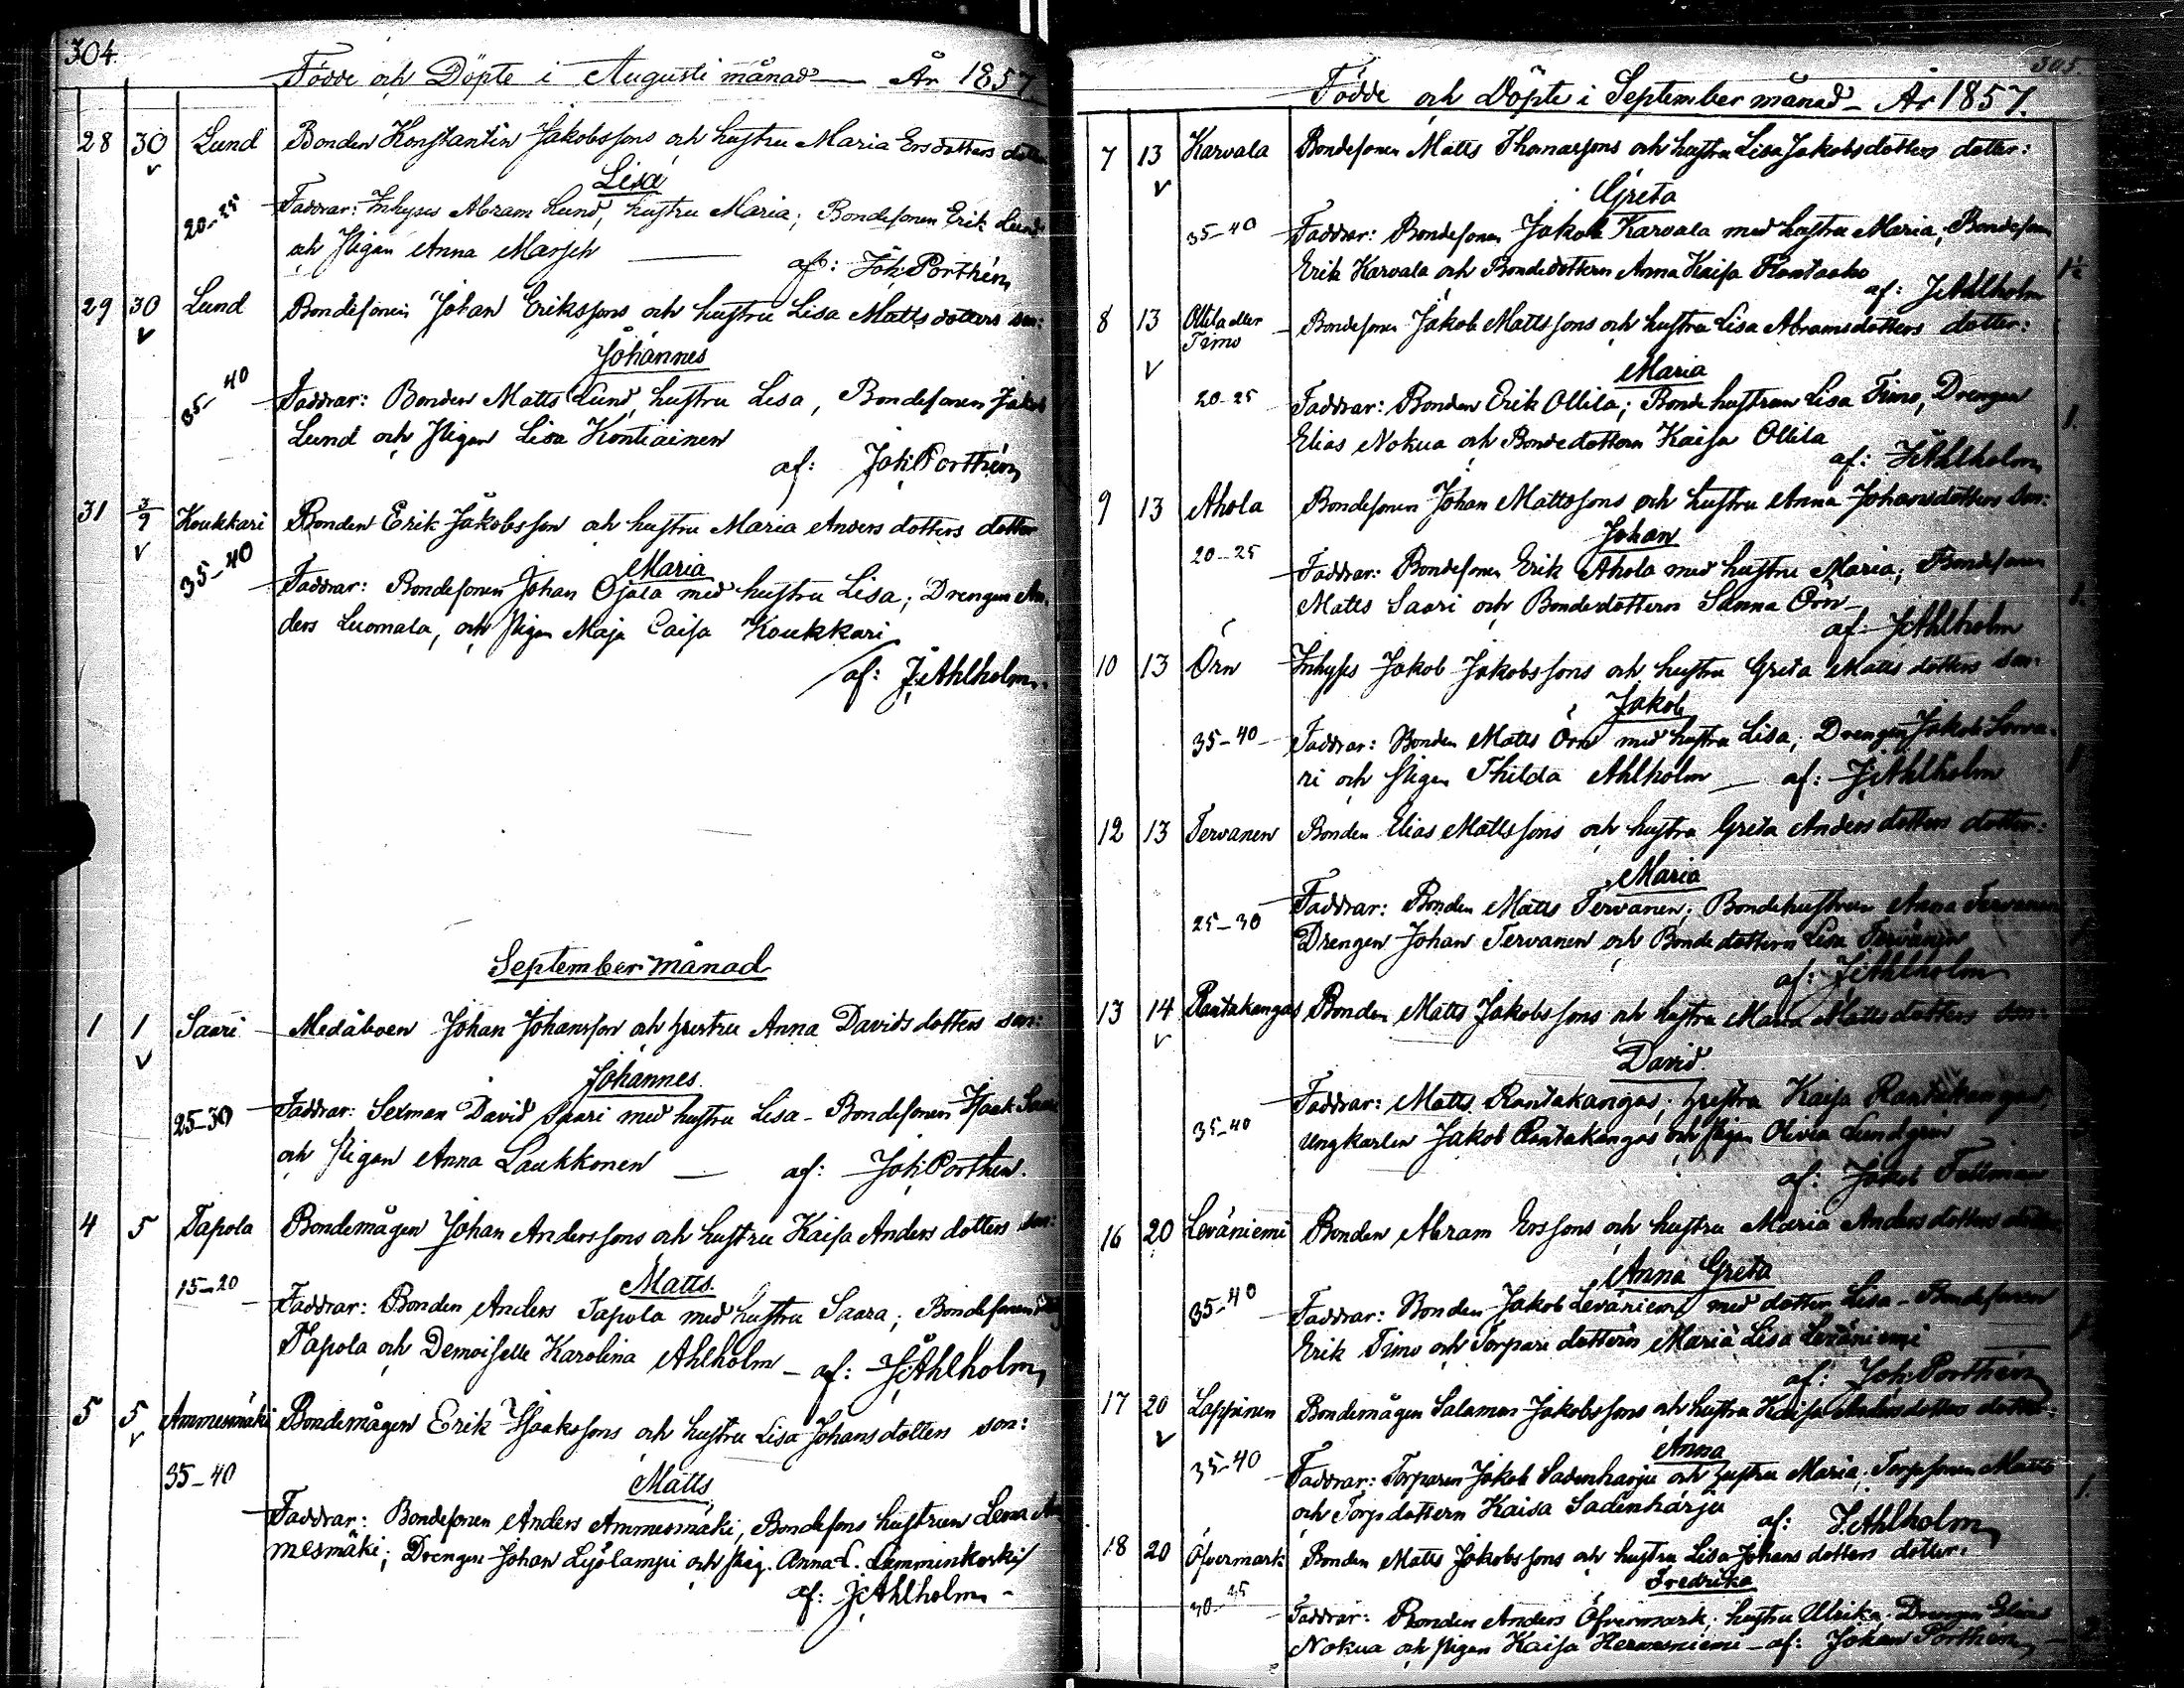 304.
Födde och Döpte i Augusti månad — År 1857
28 30 Lund Bonden Konstantin Jakobssons och hustru Maria Ersdotters dotter
Lisa
20-25 Faddrar: Inhyses Abram Lund, hustru Maria; Bondesonen Erik Lund
och Pigan Anna — af: Joh: Porthén
29 30 Lund Bondesonen Johan Erikssons och hustru Lisa Matts dotters son:
Johannes
35-40 Faddrar: Bonden Matts Lund, hustru Lisa, Bondesonen Jakob
Lund och Pigan Lisa Kontiainen
af: Joh: Porthén
31 3/9 Koukkari Bonden Erik Jakobsson och hustru Maria Anders dotters dotter
Maria
35-40 Faddrar: Bondesonen Johan Ojala med hustru Lisa; Drengen An-
ders Luomala, och Pigan Maja Caisa Koukkari
af: J: Ahlholm.
September månad
1 1 Saari Medåboen Johan Johansson och hustru Anna Davids dotters son:
Johannes.
25-30 Faddrar: Sexman David Saari med hustru Lisa - Bondesonen Isaak Saari
och Pigan Anna Laukkonen — af: Joh: Porthén.
4 5 Tapola Bondemågen Johan Anderssons och hustru Kaisa Anders dotters son:
Matts.
15-20 Faddrar: Bonden Anders Tapola med hustru Saara; Bondesonen
Tapola och Demoiselle Karolina Ahlholm - af: J: Ahlholm
5 5 Ammesmäki Bondemågen Erik Isaakssons och hustru Lisa Johans dotters son:
Matts
35-40 Faddrar: Bondesonen Anders Ammesmäki, Bondesons hustrun Lena Am
mesmäki; Drengen Johan och Pig. Anna L. Lamminkoski
af: J: Ahlholm -
305.
Födde och Döpte i September månad - År 1857.
7 13 Karvala Bondesonen Matts Thomassons och hustru Lisa Jakobsdotters dotter:
Greta
35-40 Faddrar: Bondesonen Jakob Karvala med hustru Maria; Bondesonen
Erik Karvala och Bondedottern Anna Kaisa Rantaaho 1½
af: J: Ahlholm
8 13 Ollila eller Bondesonen Jakob Mattssons och hustru Lisa Abramsdotters dotter:
Timo
Maria
20-25 Faddrar: Bonden Erik Ollila; Bondehustrun Lisa Timo, Drengen 1.
Elias Nokua och Bondedottern Kaisa Ollila
af: J: Ahlholm
9 13 Ahola Bondesonen Johan Mattssons och hustru Anna Johansdotters son:
Johan
20-25 Faddrar: Bondesonen Erik Ahola med hustru Maria; Bondesonen
Matts Saari och Bondedottern Sanna Örn - 1.
af: J: Ahlholm
10 13 Örn Inhyses Jakob Jakobssons och hustru Greta Matts dotters son:
Jakob
35-40 Faddrar: Bonden Matts Örn med hustru Lisa; Drengen Jakob Sorva-
ri och Pigan Thilda Ahlholm — af: J: Ahlholm
12 13 Tervanen Bonden Elias Mattssons och hustru Greta Anders dotters dotter:
Maria
25-30 Faddrar: Bonden Matts Tervanen; Bondehustrun Anna Tervanen
Drengen Johan Tervanen och Bondedottern Lisa Tervanen
af: J: Ahlholm
13 14 Rantakangas Bonden Matts Jakobssons och hustru Maria Mattsdotters son:
David.
35-40 Faddrar: Matts Rantakangas; hustru Kaisa Rantakangas,
Ungkarlen Jakob Rantakangas och Pigan Olivia Lundgrén
af: Jakob Fellman
16 20 Leväniemi Bonden Abram Erssons och hustru Maria Anders dotters dotter
Anna Greta
35-40 Faddrar: Bonden Jakob Leväniemi med dotter Lisa - Bondesonen
Erik Timo och Torpare dottern Maria Lisa Leväniemi
af: Joh: Porthén
17 20 Lappinen Bondemågen Salamon Jakobssons och hustru Kaisa Andersdotters dotter
Anna
35-40 Faddrar: Torparen Jakob Sadenharju och hustru Maria, Torpsonen Matts
och Torpdottern Kaisa Sadenharju 1.
af: J: Ahlholm
18 20 Öfvermark Bonden Matts Jakobssons och hustru Lisa Johans dotters dotter:
Fredrika
30-35 Faddrar: Bonden Anders Öfvermark; hustru Ulrika. Drengen Elias
Nokua och Pigan Kaisa Hermanniemi - af: Johan Porthén